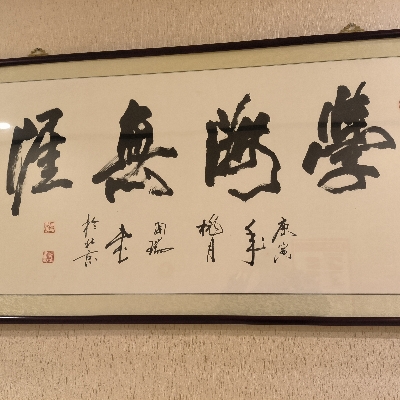 學海無涯
庚寅
年
桃月
書
於北京